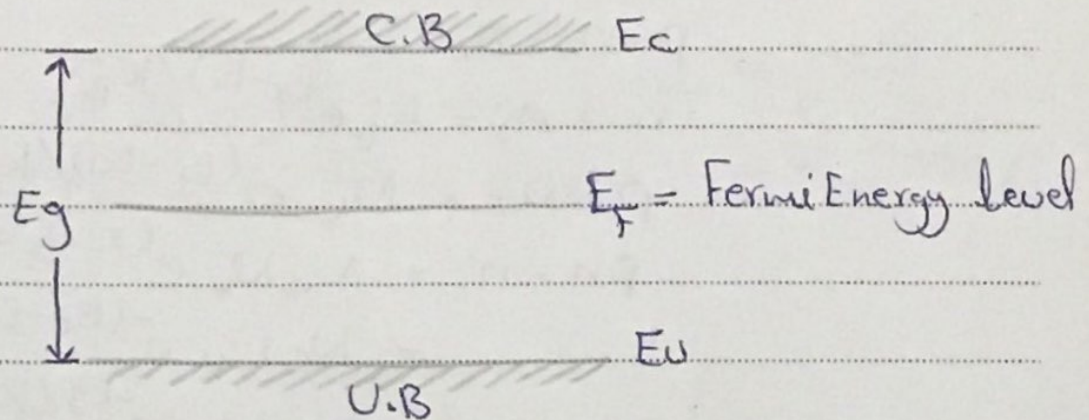 C.B Ec
Eg E_F = Fermi Energy level
Ev
V.B